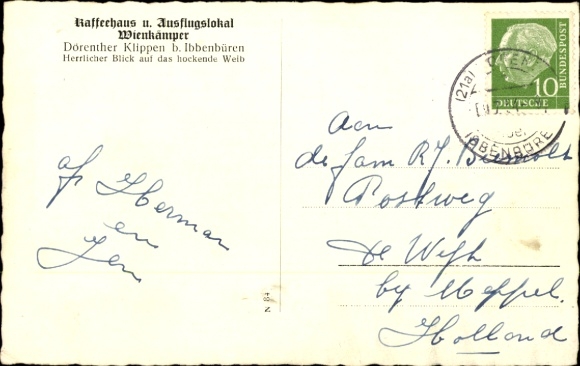 Kaffeehaus u. Ausflugslokal
Wienkämper
Dörenther Klippen b. Ibbenbüren
Herrlicher Blick auf das hockende Weib
DEUTSCHE
BUNDESPOST
10
(21a)
IBBENBÜRE
af Herman
en
Jen
N 84
Aan
de fam R.J.
Postweg
De Wijk
by Meppel.
Holland